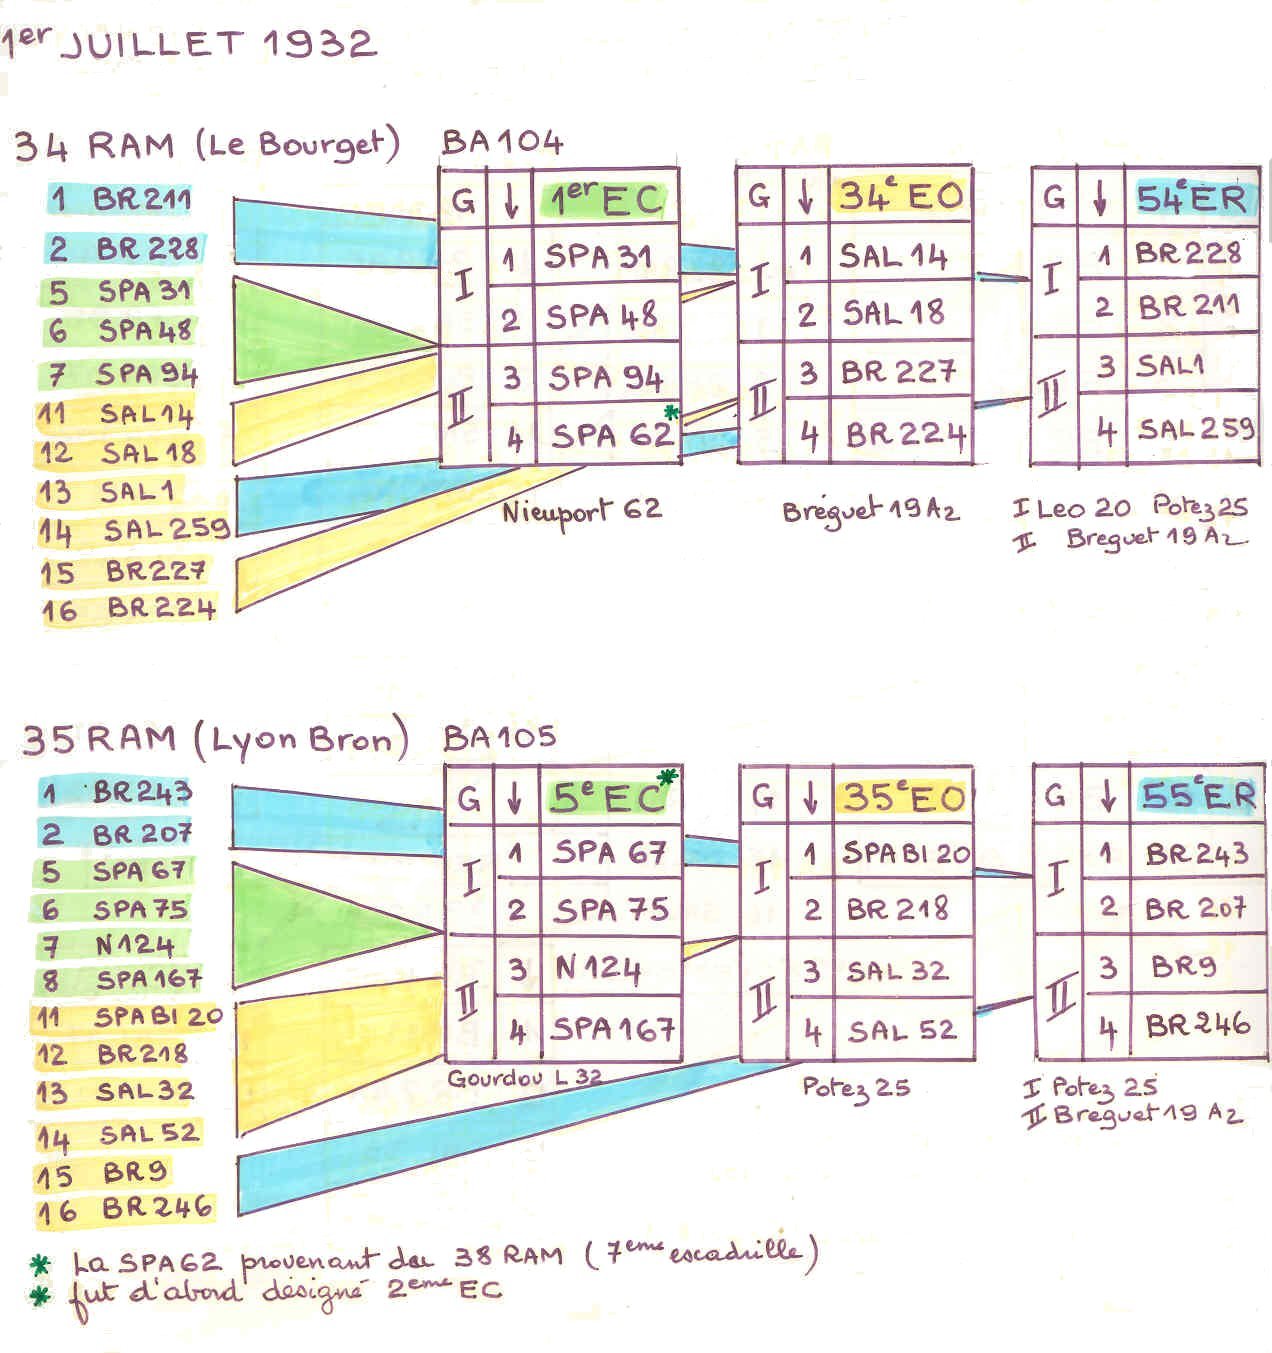 1er JUILLET 1932
34 RAM (Le Bourget) BA104
1 BR211
2 BR 228
5 SPA 31
6 SPA48
7 SPA 94
11 SAL14
12 SAL 18
13 SAL1
14 SAL259
15 BR227
16 BR224
G ↓ 1er EC
I 1 SPA 31
2 SPA 48
II 3 SPA 94
4 SPA 62*
Nieuport 62
G ↓ 34e EO
I 1 SAL 14
2 SAL 18
II 3 BR 227
4 BR 224
Bréguet 19 A2
G ↓ 54e ER
I 1 BR 228
2 BR 211
II 3 SAL1
4 SAL 259
I Leo 20 Potez 25
II Breguet 19 A2
35 RAM (Lyon Bron) BA105
1 BR243
2 BR 207
5 SPA 67
6 SPA75
7 N124
8 SPA167
11 SPABI 20
12 BR218
13 SAL32
14 SAL 52
15 BR9
16 BR 246
G ↓ 5e EC*
I 1 SPA 67
2 SPA 75
II 3 N 124
4 SPA 167
Gourdou L 32
G ↓ 35e EO
I 1 SPABI 20
2 BR 218
II 3 SAL 32
4 SAL 52
Potez 25
G ↓ 55e ER
I 1 BR 243
2 BR 207
II 3 BR9
4 BR 246
I Potez 25
II Breguet 19 A2
* La SPA62 provenant du 38 RAM (7eme escadrille)
* fut d'abord désigné 2eme EC